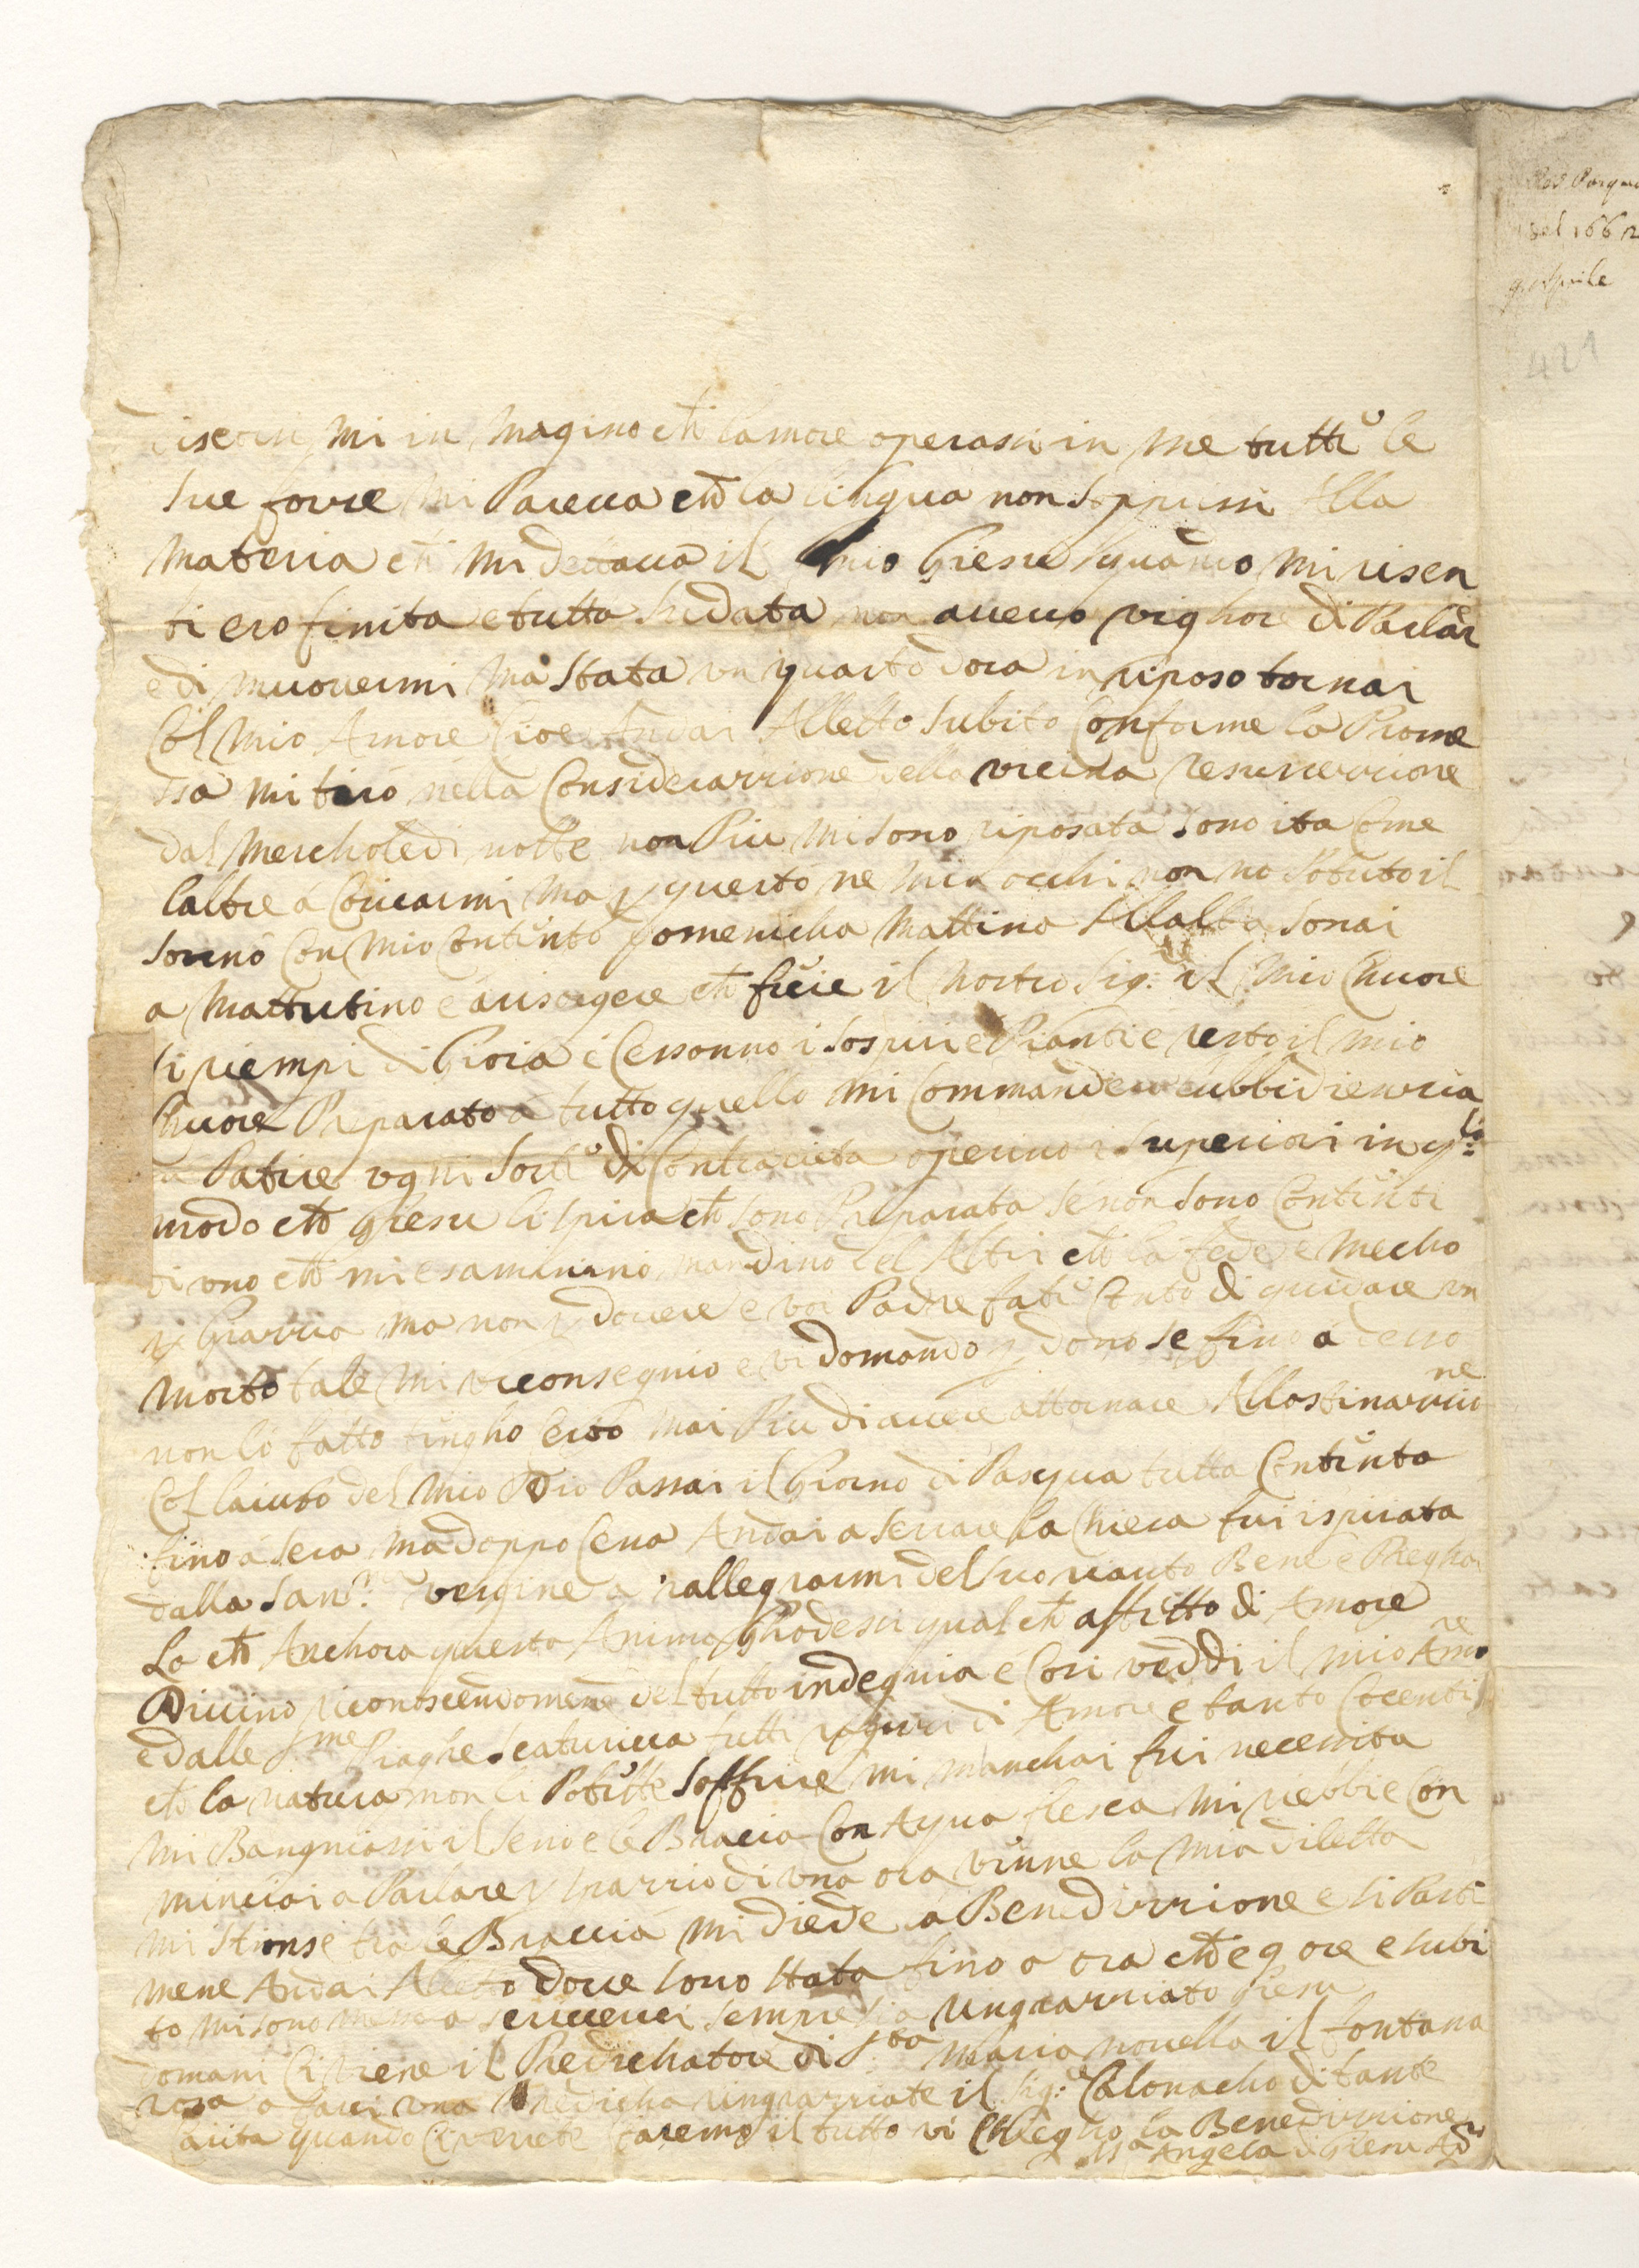 mi in magino che lamore operassi in me tutte le
sue forze mi Pareua che la lingua non Alla
materia che mi dettaua il mio Giesu quando mi risen
ti ero finita e tutta sudata non aueuo vighore di Parlar
e di muouermi ma stata un quarto dora in riposo tornai
Col mio Amore Cioe Andai Alletto subito Conforme la Prome
ssa mi tiro nella Considerazzione della vicina resurrezzione
dal Mercholedi notte non Piu mi sono riposata sono ita Come
laltre a Coricarmi ma p questo ne miei occhi non no Potuto il
sonno Con mio Contento Domenicha Mattina Allalba sonai
a Mattutino e a risorgere che fecie il nostro Sig.re il mio Chuore
si riempi di Gioia e Cessonno i sospiri e Pianti e resto il mio
Chuore Preparato a tutto quello mi Commandera lubbidienzia
a Patire ogni sorte di Contrarieta operino i superiori in q.l
modo che Giesu li spira che sono Preparata se non sono Contenti
di uno che mi esaminino mandino del Altri che la fede e mecho
p Grazzia ma non p douere e voi Padre fate Conto di guidare un
morto tale mi vi consegnio e vi domando p dono se fino a desso
non lo fatto tengho Certo mai Piu di auere attornare Allostinazzione
Col laiuto del mio Dio Passai il Giorno di Pasqua tutta Contenta
fino a sera ma doppo Cena Andai a serrare la Chiesa fui ispirata
dalla San.ma vergine a rallegrarmi del suo riauto Bene e Pregha
la che Anchora questa Anima Ghodessi qual che affetto di Amore
Diuino riconoscendomene del tutto indegnia e Cosi veddi il mio Amore
e dalle S.me Piaghe scaturiua tutti raggi di Amore e tanto Cocenti
che la natura non li Potette soffrire mi manchai fui necessita
mi Bangniassi il seno e le Braccia Con Aqua fresca mi riebbi e Con
minciai a Parlare p spazzio di una ora venne la mia diletta
mi strinse tra le Braccia mi diede la Benedizzione e si Parti
mene Andai Alletto doue sono stata fino a ora che e 9 ore e subi
to mi sono messa a scriuerui sempre sia ringraziato Giesu
domani Ci viene il Predichatore di S.ta Maria nouella il fontana
rosa a farci una Predicha ringrazziate il Sig.re Calonacho di tante
Carita quando Ci verrete faremo il tutto vi Chiegho la Benedizzione
M.a Angela di Giesu
del 1662
9 Aprile
421